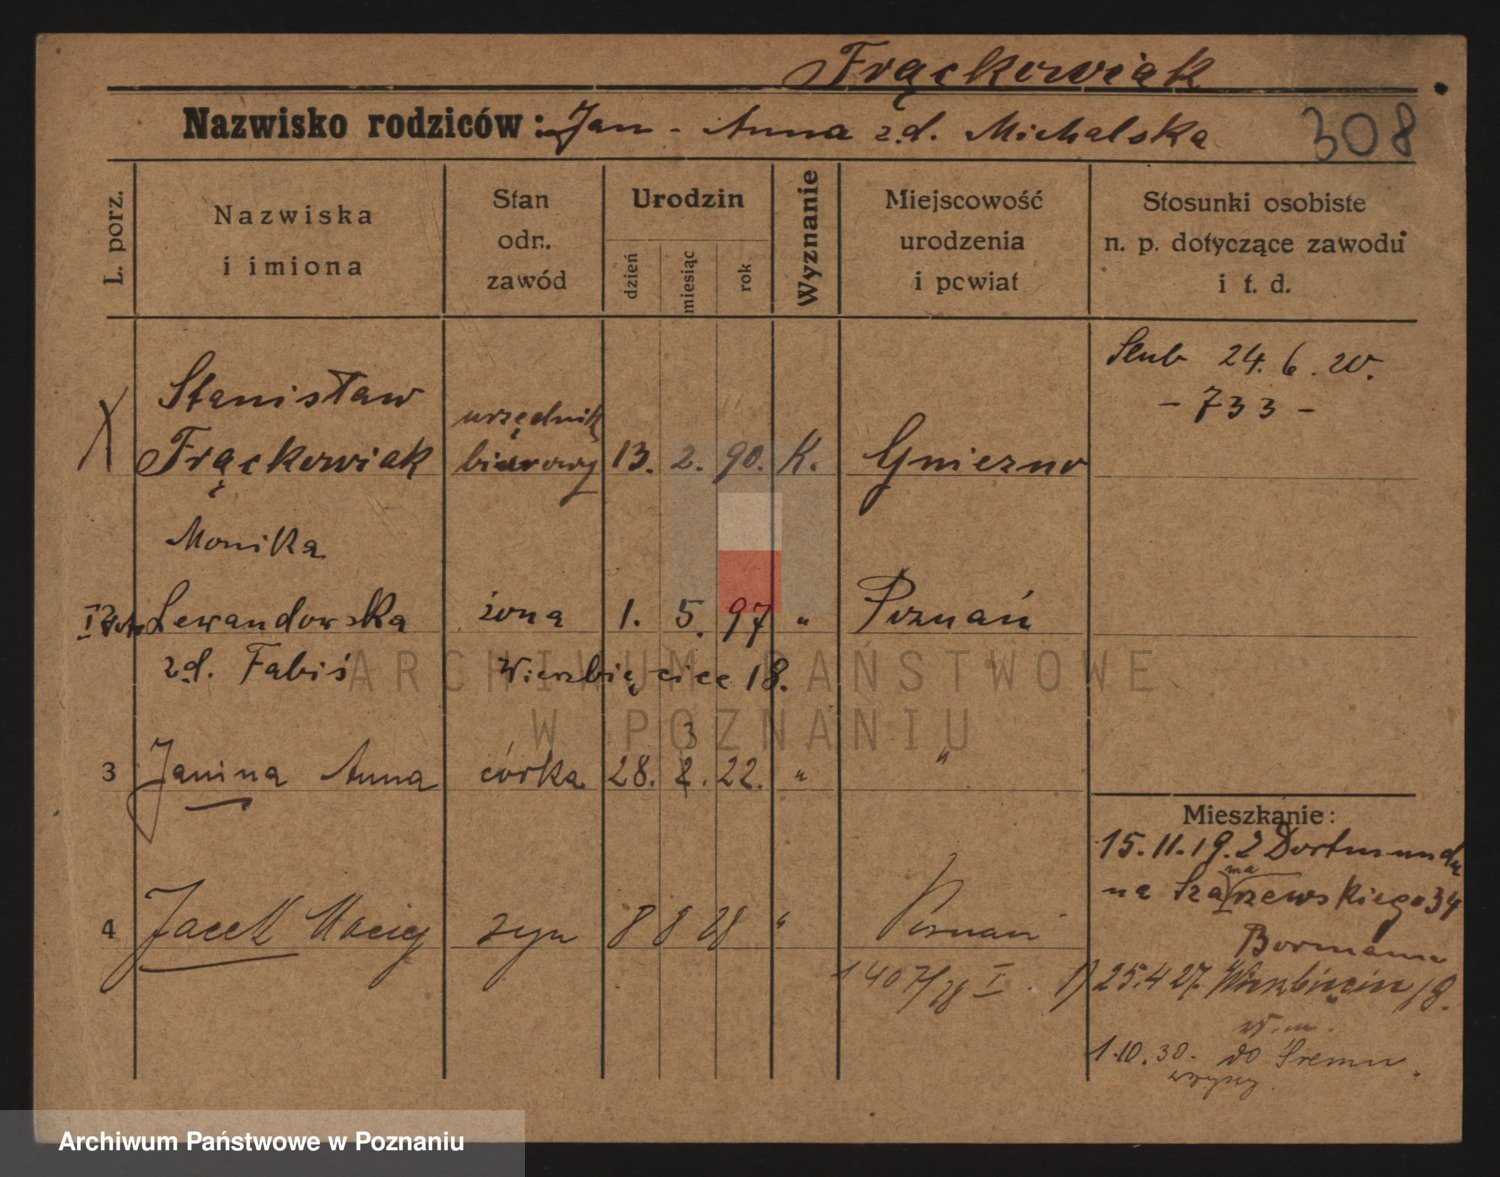 Frąckowiak
Nazwisko rodziców: Jan - Anna z.d. Michalska
308
L. porz.
Nazwiska
i imiona
Stan
odn.
zawód
Urodzin
dzień
miesiąc
rok
Wyznanie
Miejscowość
urodzenia
i powiat
Stosunki osobiste
n. p. dotyczące zawodu
i t. d.
Stanisław
Frąckowiak
urzędnik
biurowy
13. 2. 90. K. Gniezno
Ślub 24. 6. 20.
- 733 -
Monika
Lewandowska żona 1. 5. 97 " Poznań
z.d. Fabiś Wierzbięcice 18.
3 Janina Anna córka 28. 3 22. " "
4 Jacek Maciej syn 8 8 28 " Poznań
1407/28 I
Mieszkanie:
15.11.19. Dortmundu
na Szamarzewskiego 34
Bormann
25.4 27. Wierzbięcice 18.
1.10.30. do Śremu
ARCHIWUM PAŃSTWOWE
W POZNANIU
Archiwum Państwowe w Poznaniu